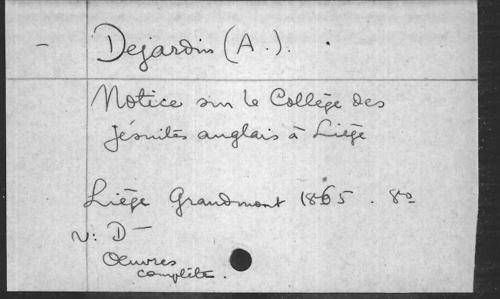 - Dejardin (A.).
Notice sur le Collège des
Jésuites anglais à Liège
Liège Grandmont 1865. 8º
v: D-
Oeuvres
complètes.